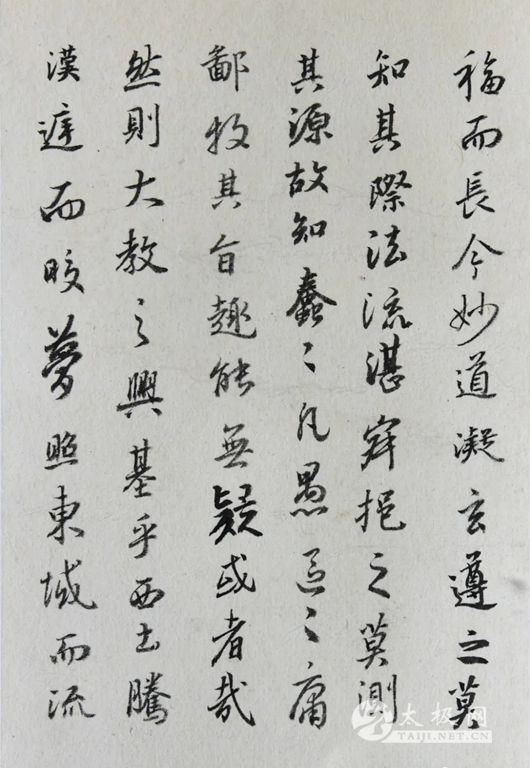 福而長今妙道凝玄遵之莫
知其際法流湛寂挹之莫測
其源故知蠢〻凡愚區〻庸
鄙投其旨趣能無疑或者哉
然則大教之興基乎西土騰
漢庭而皎夢照東域而流
太极网
TAIJI.NET.CN